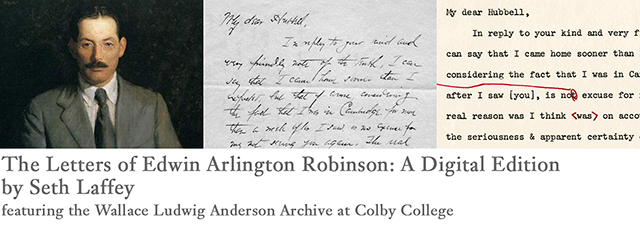 My dear Hubbell,
In reply to your kind and
very friendly note of the I can
say that I came home sooner than I
expected, but that of course considering
the fact that I was in Cambridge for more
than a week after I saw is no excuse for
my not seeing you again. The real
My dear Hubbell,
In reply to your kind and very f
can say that I came home sooner than
considering the fact that I was in Ca
after I saw [you], is not excuse for
real reason was I think <was> on acco
the seriousness & apparent certainty
The Letters of Edwin Arlington Robinson: A Digital Edition
by Seth Laffey
featuring the Wallace Ludwig Anderson Archive at Colby College